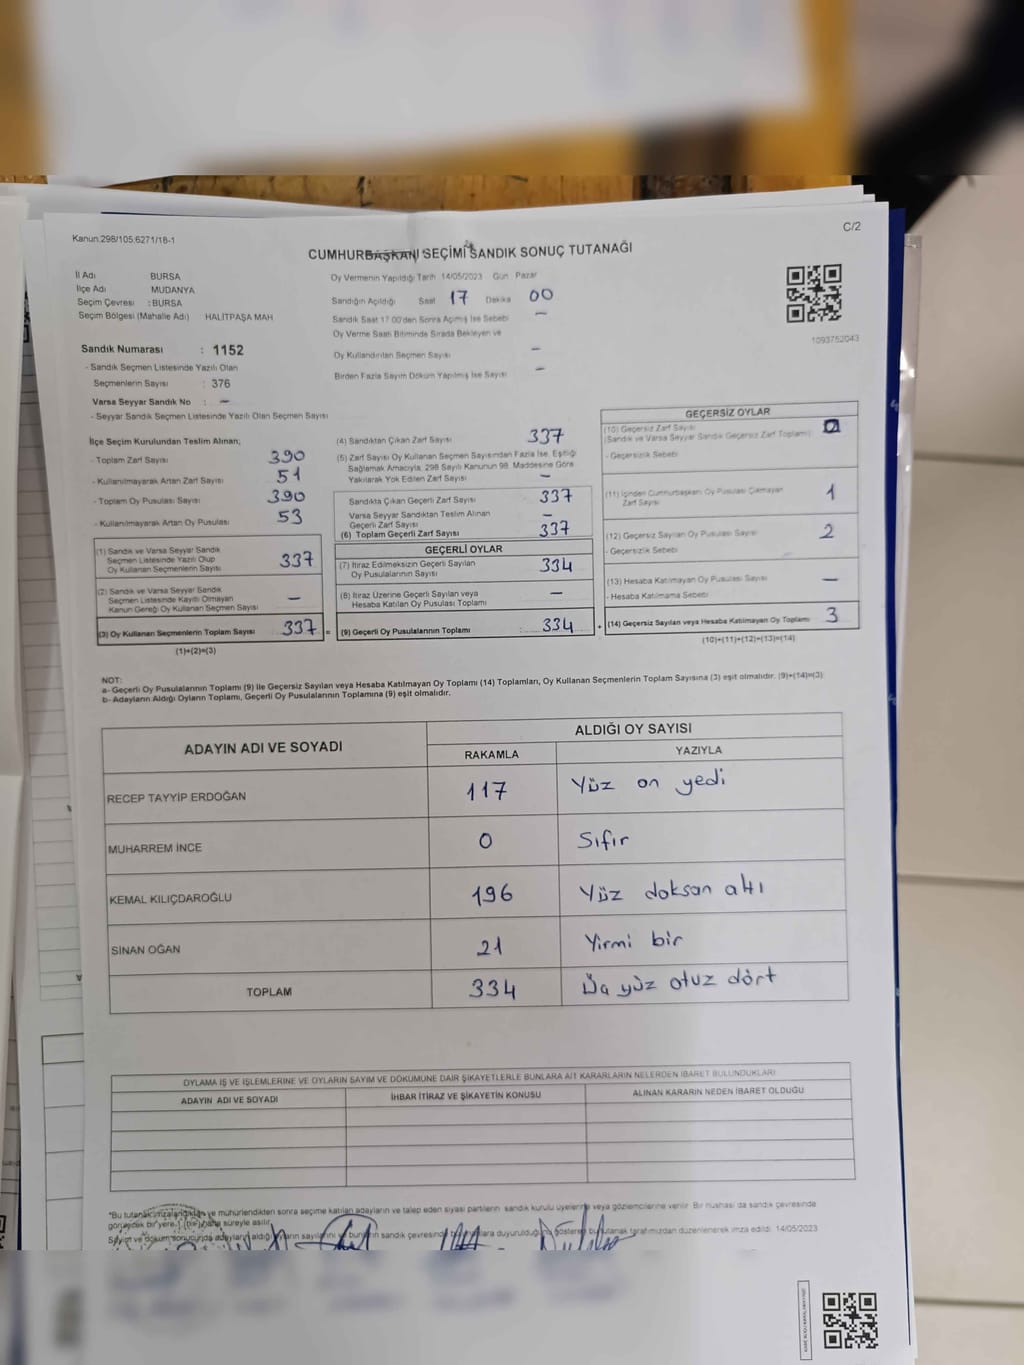 Kanun.298/105,6271/18-1
C/2
CUMHURBAŞKANI SEÇİMİ SANDIK SONUÇ TUTANAĞI
İl Adı BURSA
İlçe Adı MUDANYA
Seçim Çevresi : BURSA
Seçim Bölgesi (Mahalle Adı) HALİTPAŞA MAH
Oy Vermenin Yapıldığı Tarih 14/05/2023 Gün Pazar
Sandığın Açıldığı Saat 17 Dakika 00
Sandık Saat 17.00'den Sonra Açılmış İse Sebebi –
Oy Verme Saati Bitiminde Sırada Bekleyen ve
Oy Kullandırılan Seçmen Sayısı –
Birden Fazla Sayım Döküm Yapılmış İse Sayısı –
1093752043
Sandık Numarası : 1152
- Sandık Seçmen Listesinde Yazılı Olan
Seçmenlerin Sayısı : 376
Varsa Seyyar Sandık No : –
- Seyyar Sandık Seçmen Listesinde Yazılı Olan Seçmen Sayısı
İlçe Seçim Kurulundan Teslim Alınan;
- Toplam Zarf Sayısı 390
- Kullanılmayarak Artan Zarf Sayısı 51
- Toplam Oy Pusulası Sayısı 390
- Kullanılmayarak Artan Oy Pusulası 53
(1) Sandık ve Varsa Seyyar Sandık
Seçmen Listesinde Yazılı Olup
Oy Kullanan Seçmenlerin Sayısı 337
(2) Sandık ve Varsa Seyyar Sandık
Seçmen Listesinde Kayıtlı Olmayan
Kanun Gereği Oy Kullanan Seçmen Sayısı –
(3) Oy Kullanan Seçmenlerin Toplam Sayısı 337 =
(1)+(2)=(3)
(4) Sandıktan Çıkan Zarf Sayısı 337
(5) Zarf Sayısı Oy Kullanan Seçmen Sayısından Fazla İse, Eşitliği
Sağlamak Amacıyla, 298 Sayılı Kanunun 98. Maddesine Göre
Yakılarak Yok Edilen Zarf Sayısı –
Sandıkta Çıkan Geçerli Zarf Sayısı 337
Varsa Seyyar Sandıktan Teslim Alınan
Geçerli Zarf Sayısı –
(6) Toplam Geçerli Zarf Sayısı 337
GEÇERLİ OYLAR
(7) İtiraz Edilmeksizin Geçerli Sayılan
Oy Pusulalarının Sayısı 334
(8) İtiraz Üzerine Geçerli Sayılan veya
Hesaba Katılan Oy Pusulası Toplamı –
(9) Geçerli Oy Pusulalarının Toplamı : 334 +
GEÇERSİZ OYLAR
(10) Geçersiz Zarf Sayısı
(Sandık ve Varsa Seyyar Sandık Geçersiz Zarf Toplamı)
- Geçersizlik Sebebi
(11) İçinden Cumhurbaşkanı Oy Pusulası Çıkmayan
Zarf Sayısı 1
(12) Geçersiz Sayılan Oy Pusulası Sayısı 2
- Geçersizlik Sebebi
(13) Hesaba Katılmayan Oy Pusulası Sayısı –
- Hesaba Katılmama Sebebi
(14) Geçersiz Sayılan veya Hesaba Katılmayan Oy Toplamı 3
(10)+(11)+(12)+(13)=(14)
NOT:
a- Geçerli Oy Pusulalarının Toplamı (9) ile Geçersiz Sayılan veya Hesaba Katılmayan Oy Toplamı (14) Toplamları, Oy Kullanan Seçmenlerin Toplam Sayısına (3) eşit olmalıdır. (9)+(14)=(3)
b- Adayların Aldığı Oyların Toplamı, Geçerli Oy Pusulalarının Toplamına (9) eşit olmalıdır.
ADAYIN ADI VE SOYADI
ALDIĞI OY SAYISI
RAKAMLA YAZIYLA
RECEP TAYYİP ERDOĞAN 117 Yüz on yedi
MUHARREM İNCE 0 Sıfır
KEMAL KILIÇDAROĞLU 196 Yüz doksan altı
SİNAN OĞAN 21 Yirmi bir
TOPLAM 334 Üç yüz otuz dört
OYLAMA İŞ VE İŞLEMLERİNE VE OYLARIN SAYIM VE DÖKÜMÜNE DAİR ŞİKAYETLERLE BUNLARA AİT KARARLARIN NELERDEN İBARET BULUNDUKLARI
ADAYIN ADI VE SOYADI İHBAR İTİRAZ VE ŞİKAYETİN KONUSU ALINAN KARARIN NEDEN İBARET OLDUĞU
*Bu tutanak imzalandıktan ve mühürlendikten sonra seçime katılan adayların ve talep eden siyasi partilerin sandık kurulu üyelerine veya gözlemcilerine verilir. Bir nüshası da sandık çevresinde
görülecek bir yere 1 (bir) hafta süreyle asılır.
Sayım ve döküm sonucunda adayların aldığı oyların sayılarını ve bunların sandık çevresinde bulunanlara duyurulduğunu gösteren bu tutanak tarafımızdan düzenlenerek imza edildi. 14/05/2023